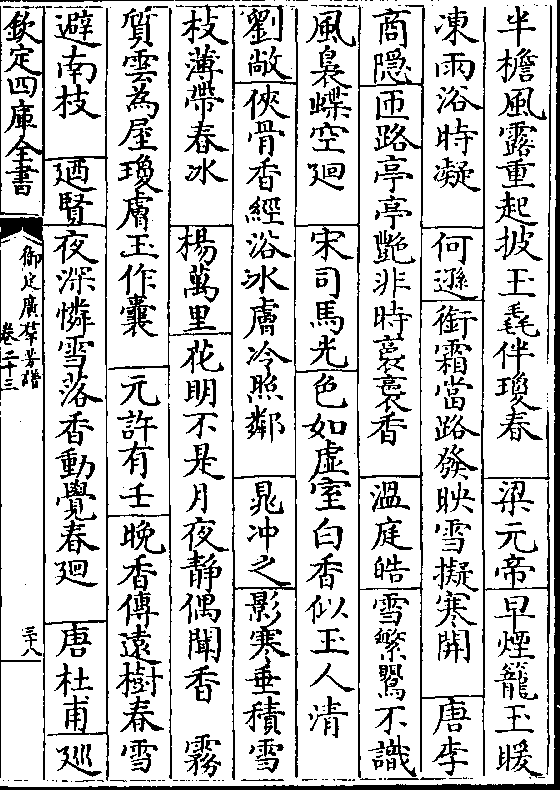 半檐風露重起披玉毳伴瓊春　梁元帝早煙籠玉暖
凍雨浴時凝　何遜銜霜當路發映雪擬寒開　唐李
商隱匝路亭亭艷非時裛裛香　溫庭皓雪繁鶯不識
風裊蝶空廻　宋司馬光色如虛室白香似玉人清
劉敞俠骨香經浴冰膚冷照鄰　晁冲之影寒垂積雪
枝薄帶春冰　楊萬里花明不是月夜静偶聞香　霧
質雲為屋瓊膚玉作囊　元許有壬晚香傳遠樹春雪
避南枝　廼賢夜深憐雪落香動覺春廻　唐杜甫廵
欽定四庫全書
御定廣羣芳譜
卷二十三
三十八